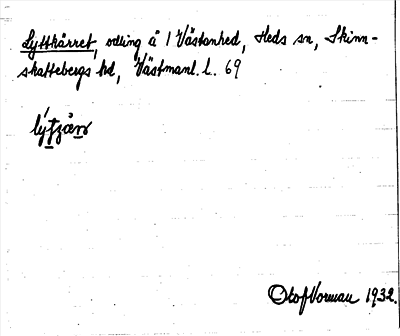 Lyttkärret, odling å 1 Västanhed, Heds sn, Skinn-
skattebergs hd, Västmanl. l. 69
Olof Vorman 1932.